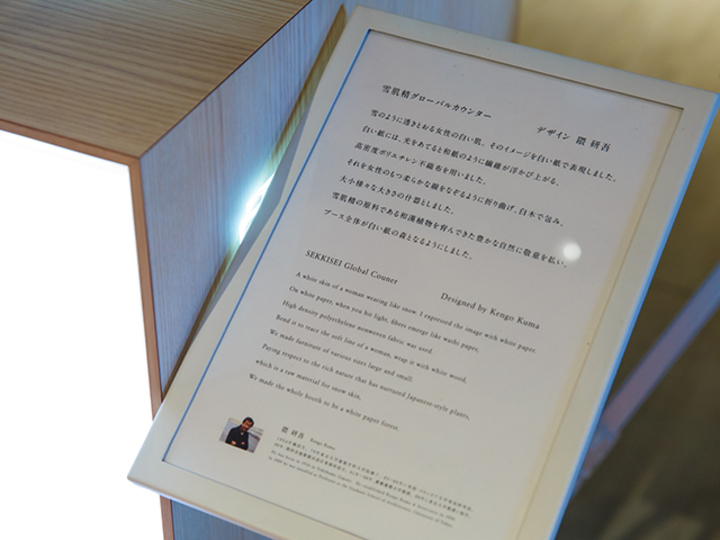 雪肌精グローバルカウンター
デザイン 隈 研吾
雪のように透きとおる女性の白い肌。そのイメージを白い紙で表現しました。
白い紙には、光をあてると和紙のように繊維が浮かび上がる、
高密度ポリエチレン不織布を用いました。
それを女性のもつ柔らかな線をなぞるように折り曲げ、白木で包み、
大小様々な大きさの什器としました。
雪肌精の原料である和漢植物を育んできた豊かな自然に敬意を払い、
ブース全体が白い紙の森となるようにしました。
SEKKISEI Global Couner
Designed by Kengo Kuma
A white skin of a woman wearing like snow. I expressed the image with white paper.
On white paper, when you hit light, fibers emerge like washi paper,
High density polyethylene nonwoven fabric was used.
Bend it to trace the soft line of a woman, wrap it with white wood,
We made furniture of various sizes large and small.
Paying respect to the rich nature that has nurtured Japanese-style plants,
which is a raw material for snow skin,
We made the whole booth to be a white paper forest.
隈 研吾 Kengo Kuma